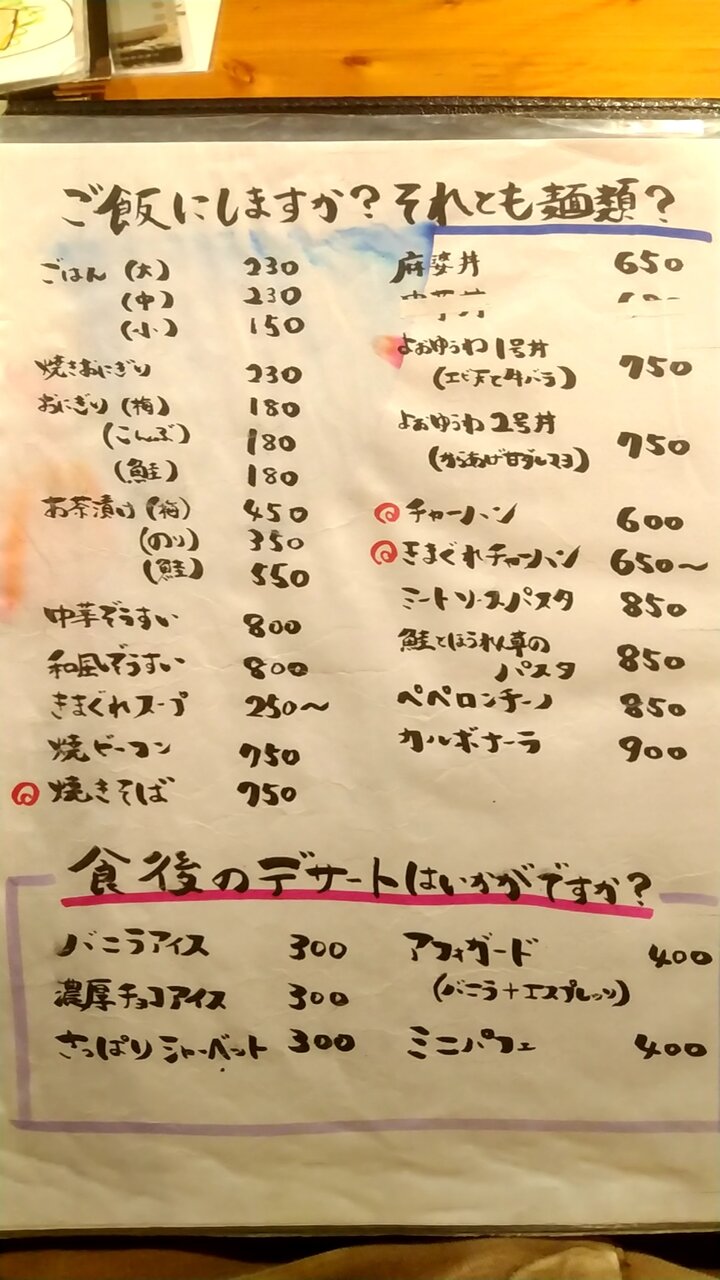 ご飯にしますか?それとも麺類?
ごはん (大) 230
(中) 230
(小) 150
焼きおにぎり 230
おにぎり (梅) 180
(こんぶ) 180
(鮭) 180
お茶漬け (梅) 450
(のり) 350
(鮭) 550
中華ぞうすい 800
和風ぞうすい 800
きまぐれスープ 250〜
焼ビーフン 750
焼きそば 750
麻婆丼 650
よぉゆうわ 1号丼
(エビ天と牛バラ) 750
よぉゆうわ 2号丼
(からあげ甘ダレマヨ) 750
チャーハン 600
きまぐれチャーハン 650〜
ミートソースパスタ 850
鮭とほうれん草の
パスタ 850
ペペロンチーノ 850
カルボナーラ 900
食後のデザートはいかがですか?
バニラアイス 300
濃厚チョコアイス 300
さっぱりシャーベット 300
アフォガード 400
(バニラ+エスプレッソ)
ミニパフェ 400